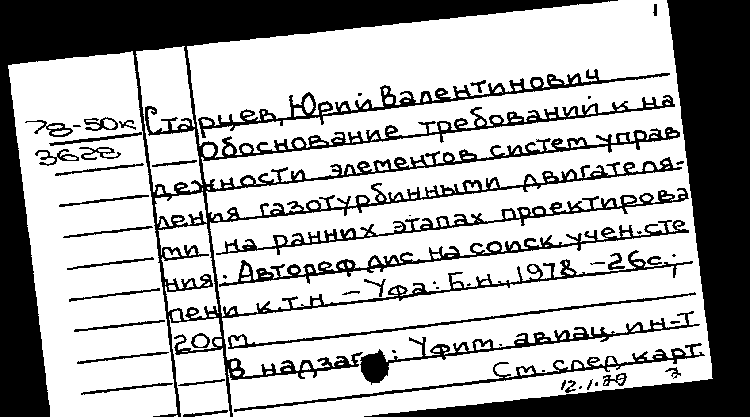 1
78-50к Старцев, Юрий Валентинович
3628 Обоснование требований к на
дежности элементов систем управ
ления газотурбинными двигателя-
ми на ранних этапах проектирова
ния: Автореф дис. на соиск. учен. сте
пени к.т.н. – Уфа: Б.н., 1978. – 26с.;
20см.
В надзаг.: Уфим. авиац. ин-т
См. след. карт.
12.1.79